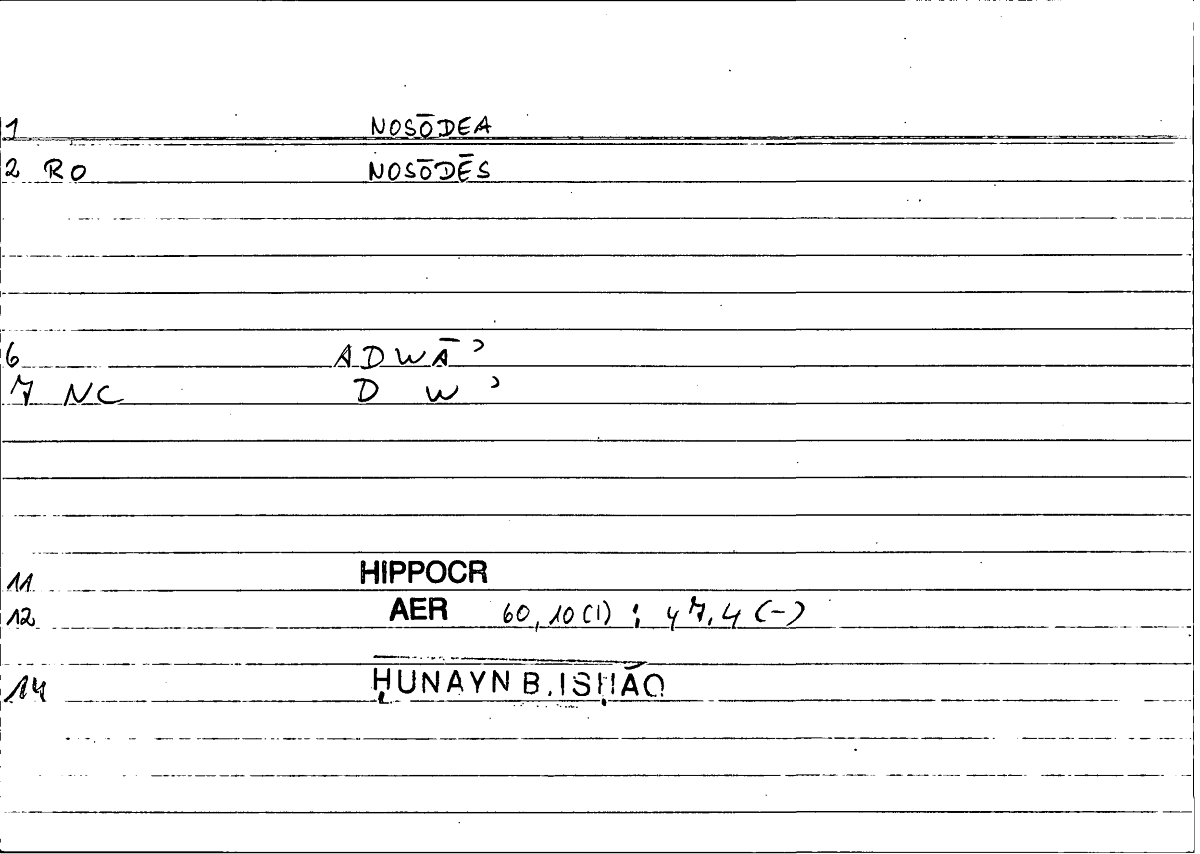 1 NOSŌDEA
2 RO NOSŌDĒS
6 ADWĀʾ
7 NC D W ʾ
11 HIPPOCR
12 AER 60,10(1) : 47,4 (-)
14 ḤUNAYN B. ISḤĀQ